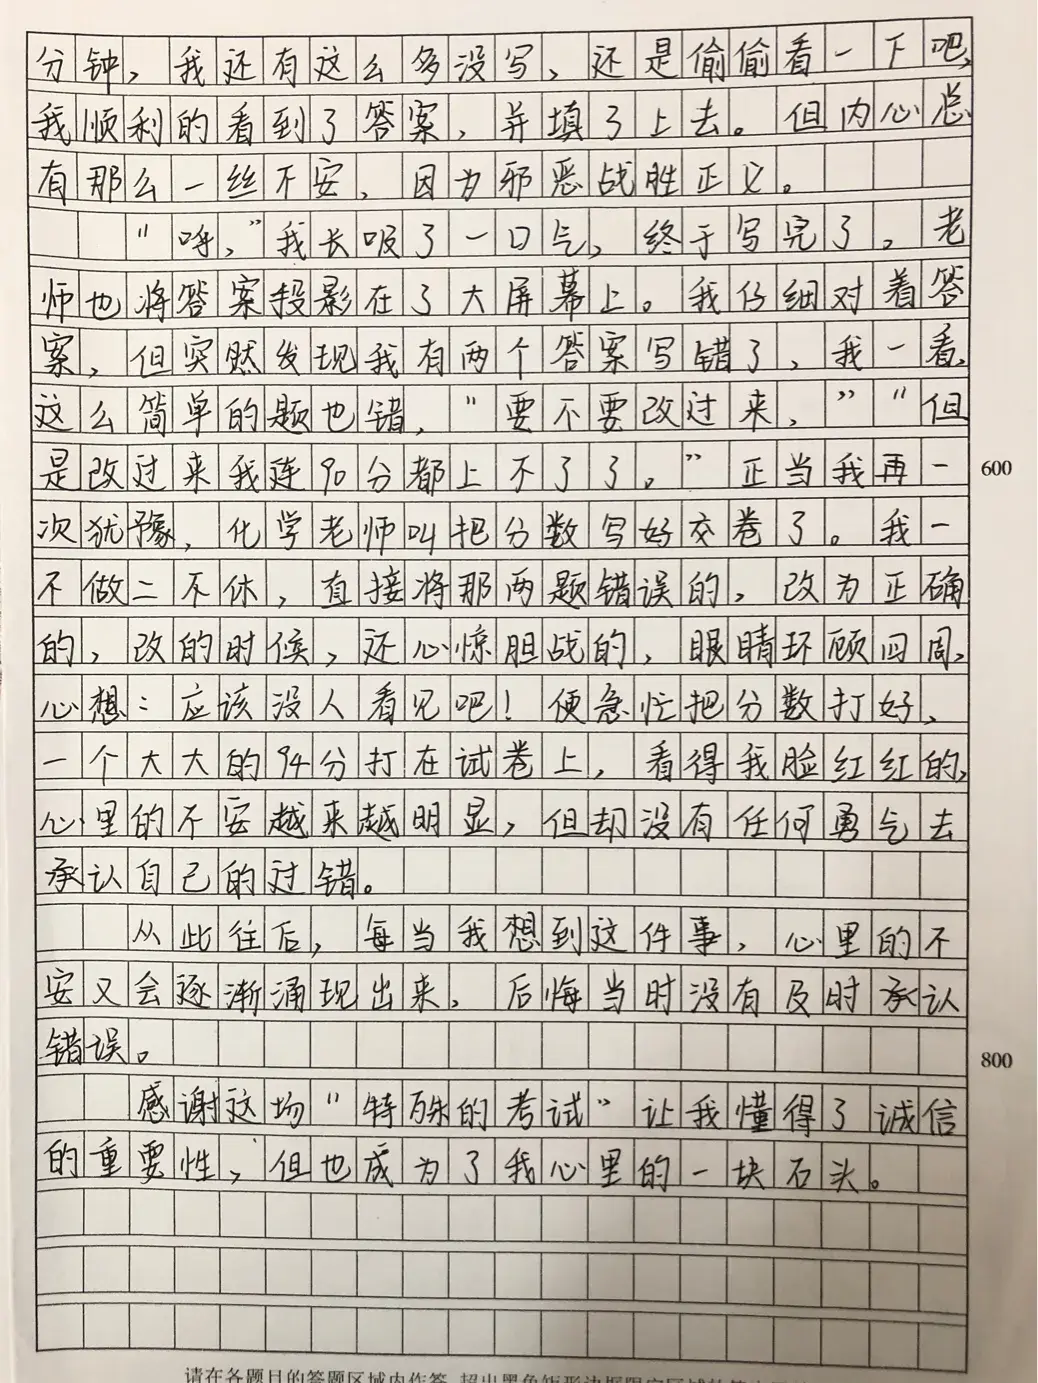 分钟，我还有这么多没写，还是偷偷看一下吧，
我顺利的看到了答案，并填了上去。但内心总
有那么一丝不安，因为邪恶战胜正义。
“呼，”我长吸了一口气，终于写完了。老
师也将答案投影在了大屏幕上。我仔细对着答
案，但突然发现我有两个答案写错了，我一看，
这么简单的题也错，“要不要改过来，”“但
是改过来我连90分都上不了了。”正当我再一
600
次犹豫，化学老师叫把分数写好交卷了。我一
不做二不休，直接将那两题错误的，改为正确
的，改的时候，还心惊胆战的，眼睛环顾四周，
心想：应该没人看见吧！便急忙把分数打好，
一个大大的94分打在试卷上，看得我脸红红的，
心里的不安越来越明显，但却没有任何勇气去
承认自己的过错。
从此往后，每当我想到这件事，心里的不
安又会逐渐涌现出来，后悔当时没有及时承认
错误。
800
感谢这场“特殊的考试”让我懂得了诚信
的重要性，但也成为了我心里的一块石头。
请在各题目的答题区域内作答